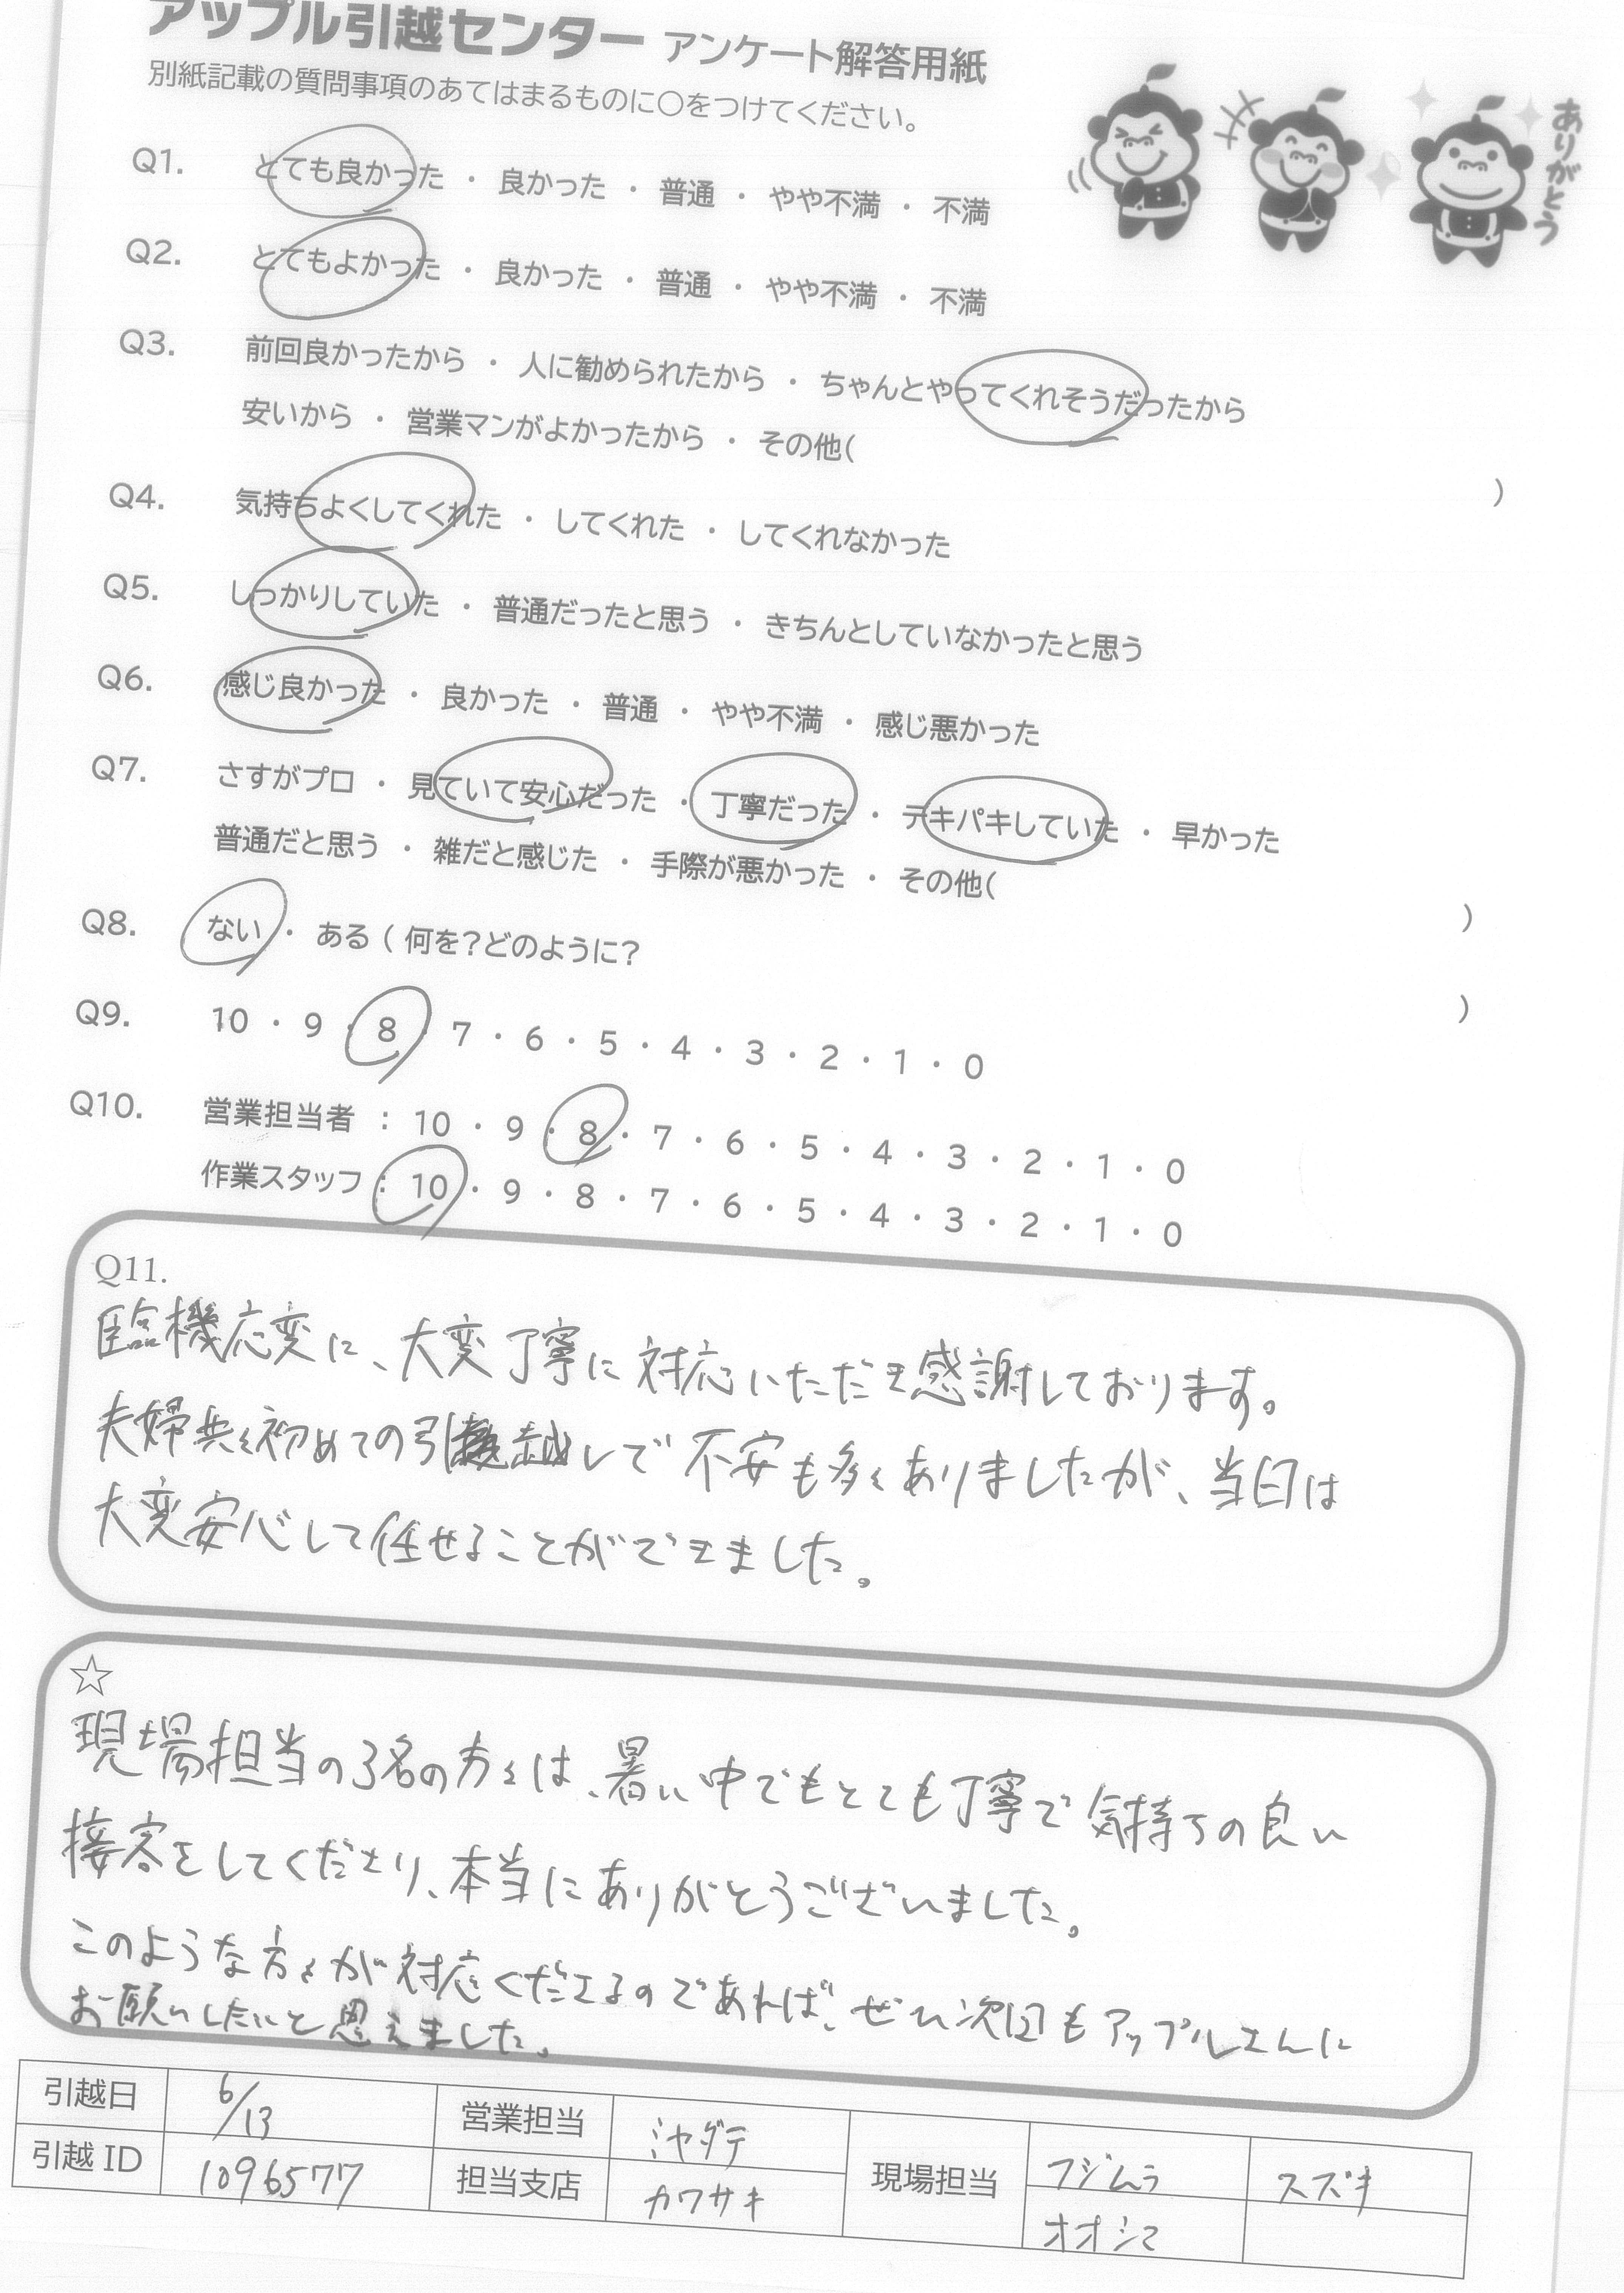 アップル引越センター アンケート解答用紙
別紙記載の質問事項のあてはまるものに〇をつけてください。
ありがとう
Q1. とても良かった ・ 良かった ・ 普通 ・ やや不満 ・ 不満
Q2. とてもよかった ・ 良かった ・ 普通 ・ やや不満 ・ 不満
Q3. 前回良かったから ・ 人に勧められたから ・ ちゃんとやってくれそうだったから
安いから ・ 営業マンがよかったから ・ その他( )
Q4. 気持ちよくしてくれた ・ してくれた ・ してくれなかった
Q5. しっかりしていた ・ 普通だったと思う ・ きちんとしていなかったと思う
Q6. 感じ良かった ・ 良かった ・ 普通 ・ やや不満 ・ 感じ悪かった
Q7. さすがプロ ・ 見ていて安心だった ・ 丁寧だった ・ テキパキしていた ・ 早かった
普通だと思う ・ 雑だと感じた ・ 手際が悪かった ・ その他( )
Q8. ない ・ ある ( 何を?どのように? )
Q9. 10 ・ 9 ・ 8 ・ 7 ・ 6 ・ 5 ・ 4 ・ 3 ・ 2 ・ 1 ・ 0
Q10. 営業担当者 : 10 ・ 9 ・ 8 ・ 7 ・ 6 ・ 5 ・ 4 ・ 3 ・ 2 ・ 1 ・ 0
作業スタッフ : 10 ・ 9 ・ 8 ・ 7 ・ 6 ・ 5 ・ 4 ・ 3 ・ 2 ・ 1 ・ 0
Q11.
臨機応変に、大変丁寧に対応いただき感謝しております。
夫婦共々初めての引越しで不安も多くありましたが、当日は
大変安心して任せることができました。
☆
現場担当の3名の方々は、暑い中でもとても丁寧で気持ちの良い
接客をしてくださり、本当にありがとうございました。
このような方々が対応くださるのであれば、ぜひ次回もアップルさんに
お願いしたいと思えました。
引越日 6/13 営業担当 ミヤダテ 現場担当 フジムラ スズキ
引越 ID 1096577 担当支店 カワサキ オオシマ